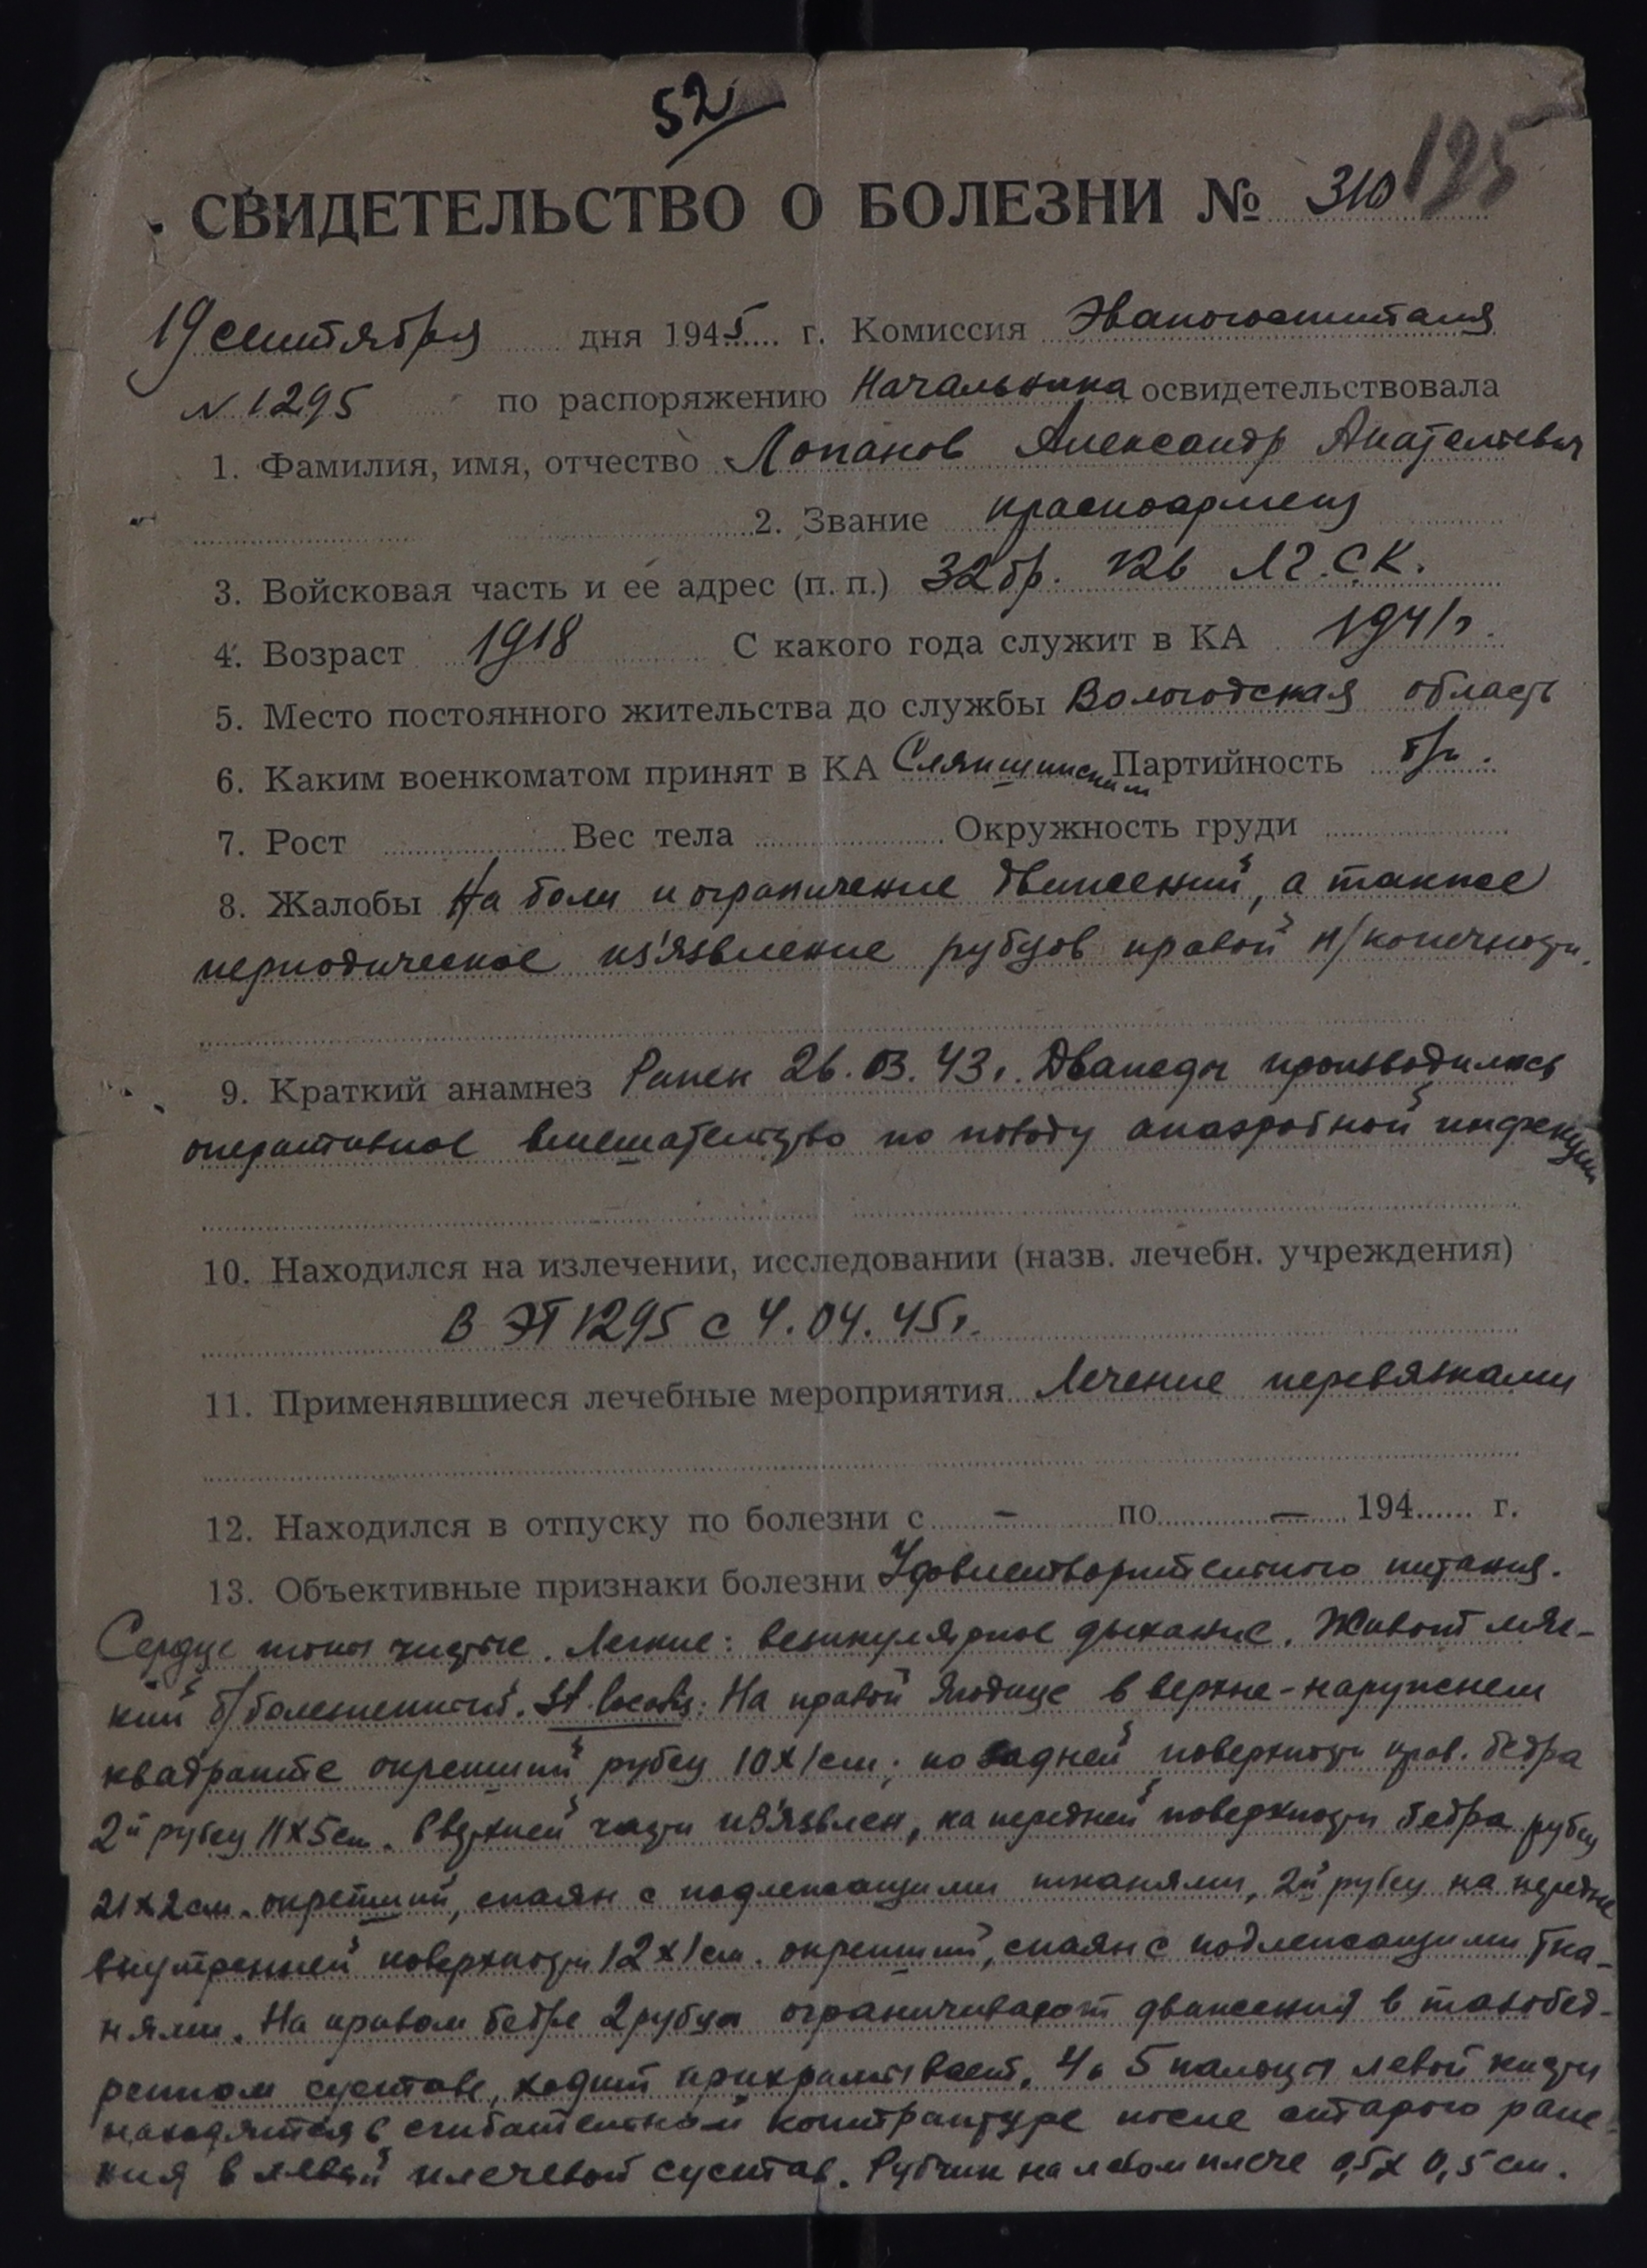 52
195
СВИДЕТЕЛЬСТВО О БОЛЕЗНИ № 310
19 сентября дня 1945 г. Комиссия Эвакогоспиталя
N 1295 по распоряжению Начальника освидетельствовала
1. Фамилия, имя, отчество Лопанов Александр
2. Звание красноармеец
3. Войсковая часть и её адрес (п. п.) 32 бр.
4. Возраст 1918 С какого года служит в КА 1941 г.
5. Место постоянного жительства до службы Вологодская область
6. Каким военкоматом принят в КА Партийность б/п.
7. Рост Вес тела Окружность груди
8. Жалобы На боли и ограничение движений, а также
периодическое из'язвление рубцов правой н/конечности.
9. Краткий анамнез Ранен 26.03.43 г. Дважды производилось
оперативное вмешательство по поводу анаэробной инфекции
10. Находился на излечении, исследовании (назв. лечебн. учреждения)
В ЭГ 1295 с 4.04.45 г.
11. Применявшиеся лечебные мероприятия Лечение перевязками
12. Находился в отпуску по болезни с – по — 194 г.
13. Объективные признаки болезни Удовлетворительного питания.
Сердце тоны чистые. Легкие: везикулярное дыхание. Живот мяг-
кий б/болезненный. St. localis: На правой ягодице в верхне-наружнем
квадранте окрепший рубец 10х1 см; по задней поверхности прав. бедра
2й рубец 11х5 см. В верхней части из'язвлен, на передней поверхности бедра рубец
21х2 см. окрепший, спаян с подлежащими тканями, 2й рубец на передне
внутренней поверхности 12х1 см. окрепший, спаян с подлежащими тка-
нями. На правом бедре 2 рубца ограничивают движения в тазобед-
ренном суставе, ходит прихрамывает. 4 и 5 пальцы левой кисти
находятся в сгибательной контрактуре после старого ране-
ния в левый плечевой сустав. Рубчик на левом плече 0,5х0,5 см.